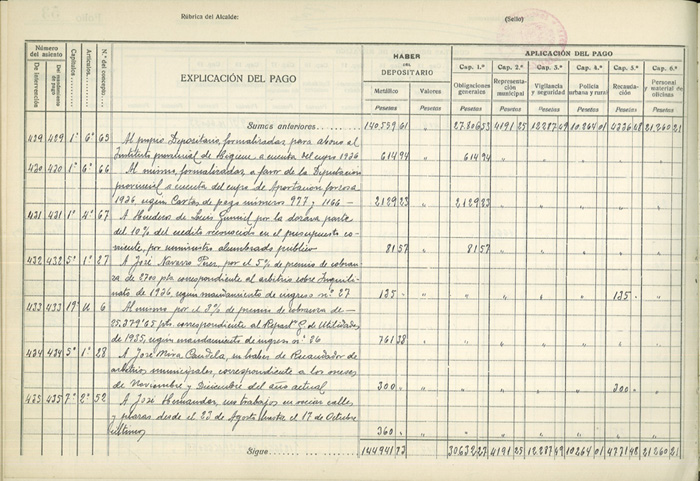 Rúbrica del Alcalde: (Sello)
Número del asiento
De intervención
Del mandamiento de pago
Capítulos
Artículos
N.º del concepto
EXPLICACIÓN DEL PAGO
HABER DEL DEPOSITARIO
Metálico Valores
Pesetas Pesetas
APLICACIÓN DEL PAGO
Cap. 1.º Cap. 2.º Cap. 3.º Cap. 4.º Cap. 5.º Cap. 6.º
Obligaciones generales
Representación municipal
Vigilancia y seguridad
Policía urbana y rural
Recaudación
Personal y material de oficinas
Pesetas Pesetas Pesetas Pesetas Pesetas Pesetas
Sumas anteriores 140,559 61 " 27.806 53 4191 25 12287 49 10264 01 4336 28 21260 21
429 429 1º 6º 65 Al propio Depositario, formalizadas para abono al
Instituto provincial de Higiene a cuenta del cupo 1936 614 94 " 614 94
430 430 1º 6º 66 Al mismo, formalizadas, a favor de la Diputacion
provincial a cuenta del cupo de Aportacion forzosa
1936, según Cartas de pago números 977 y 1166 - 2129 23 2129 23
431 431 1º 4º 67 A Herederos de Luis Gumiel por la dozava parte
del 10% del credito reconocido en el presupuesto co-
rriente, por suministro alumbrado publico 81 57 81 57
432 432 5º 1º 27 A José Navarro Pérez, por el 5% de premio de cobran-
za de 2700 pts correspondiente al arbitrio sobre Inquili-
nato de 1936, según mandamiento de ingreso nº 27 135 " 135 "
433 433 19º U 6 Al mismo por el 3% de premio de cobranza de -
25,379'65 pts. correspondiente al Repartº G. de Utilidades
de 1935, según mandamiento de ingreso nº 36 761 38
434 434 5º 1º 28 A José Mira Candela, su haber de Recaudador de
arbitrios municipales, correspondiente a los meses
de Noviembre y Diciembre del año actual 300 " 300 "
435 435 7º 2º 52 A José Hernandez, sus trabajos en calles
y plazas desde el 23 de Agosto hasta el 17 de Octubre
ultimos 360 "
Sigue 144941 73 30632 27 4191 25 12287 49 10264 01 4771 48 21260 21